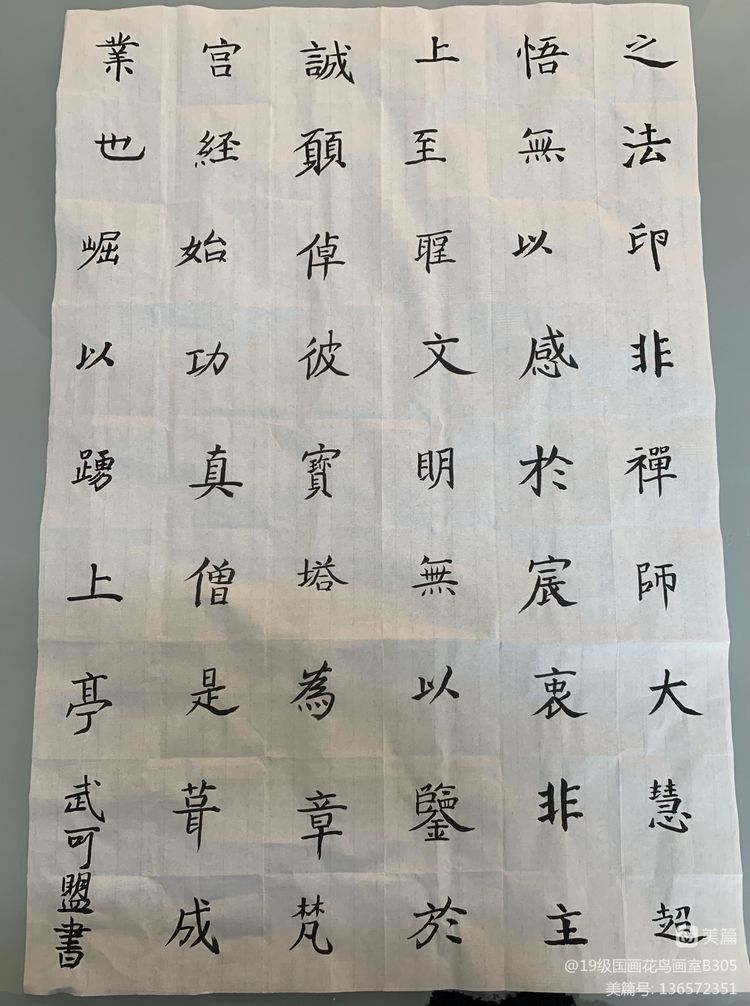 之法印非禪師大慧超
悟無以感於宸衷非主
上至聖文明無以鑒於
誠願倬彼寶塔為章梵
宫経始功真僧是葺成
業也崛以踴上亭
武可盟書
美篇
@19级国画花鸟画室B305
美篇号: 136572351